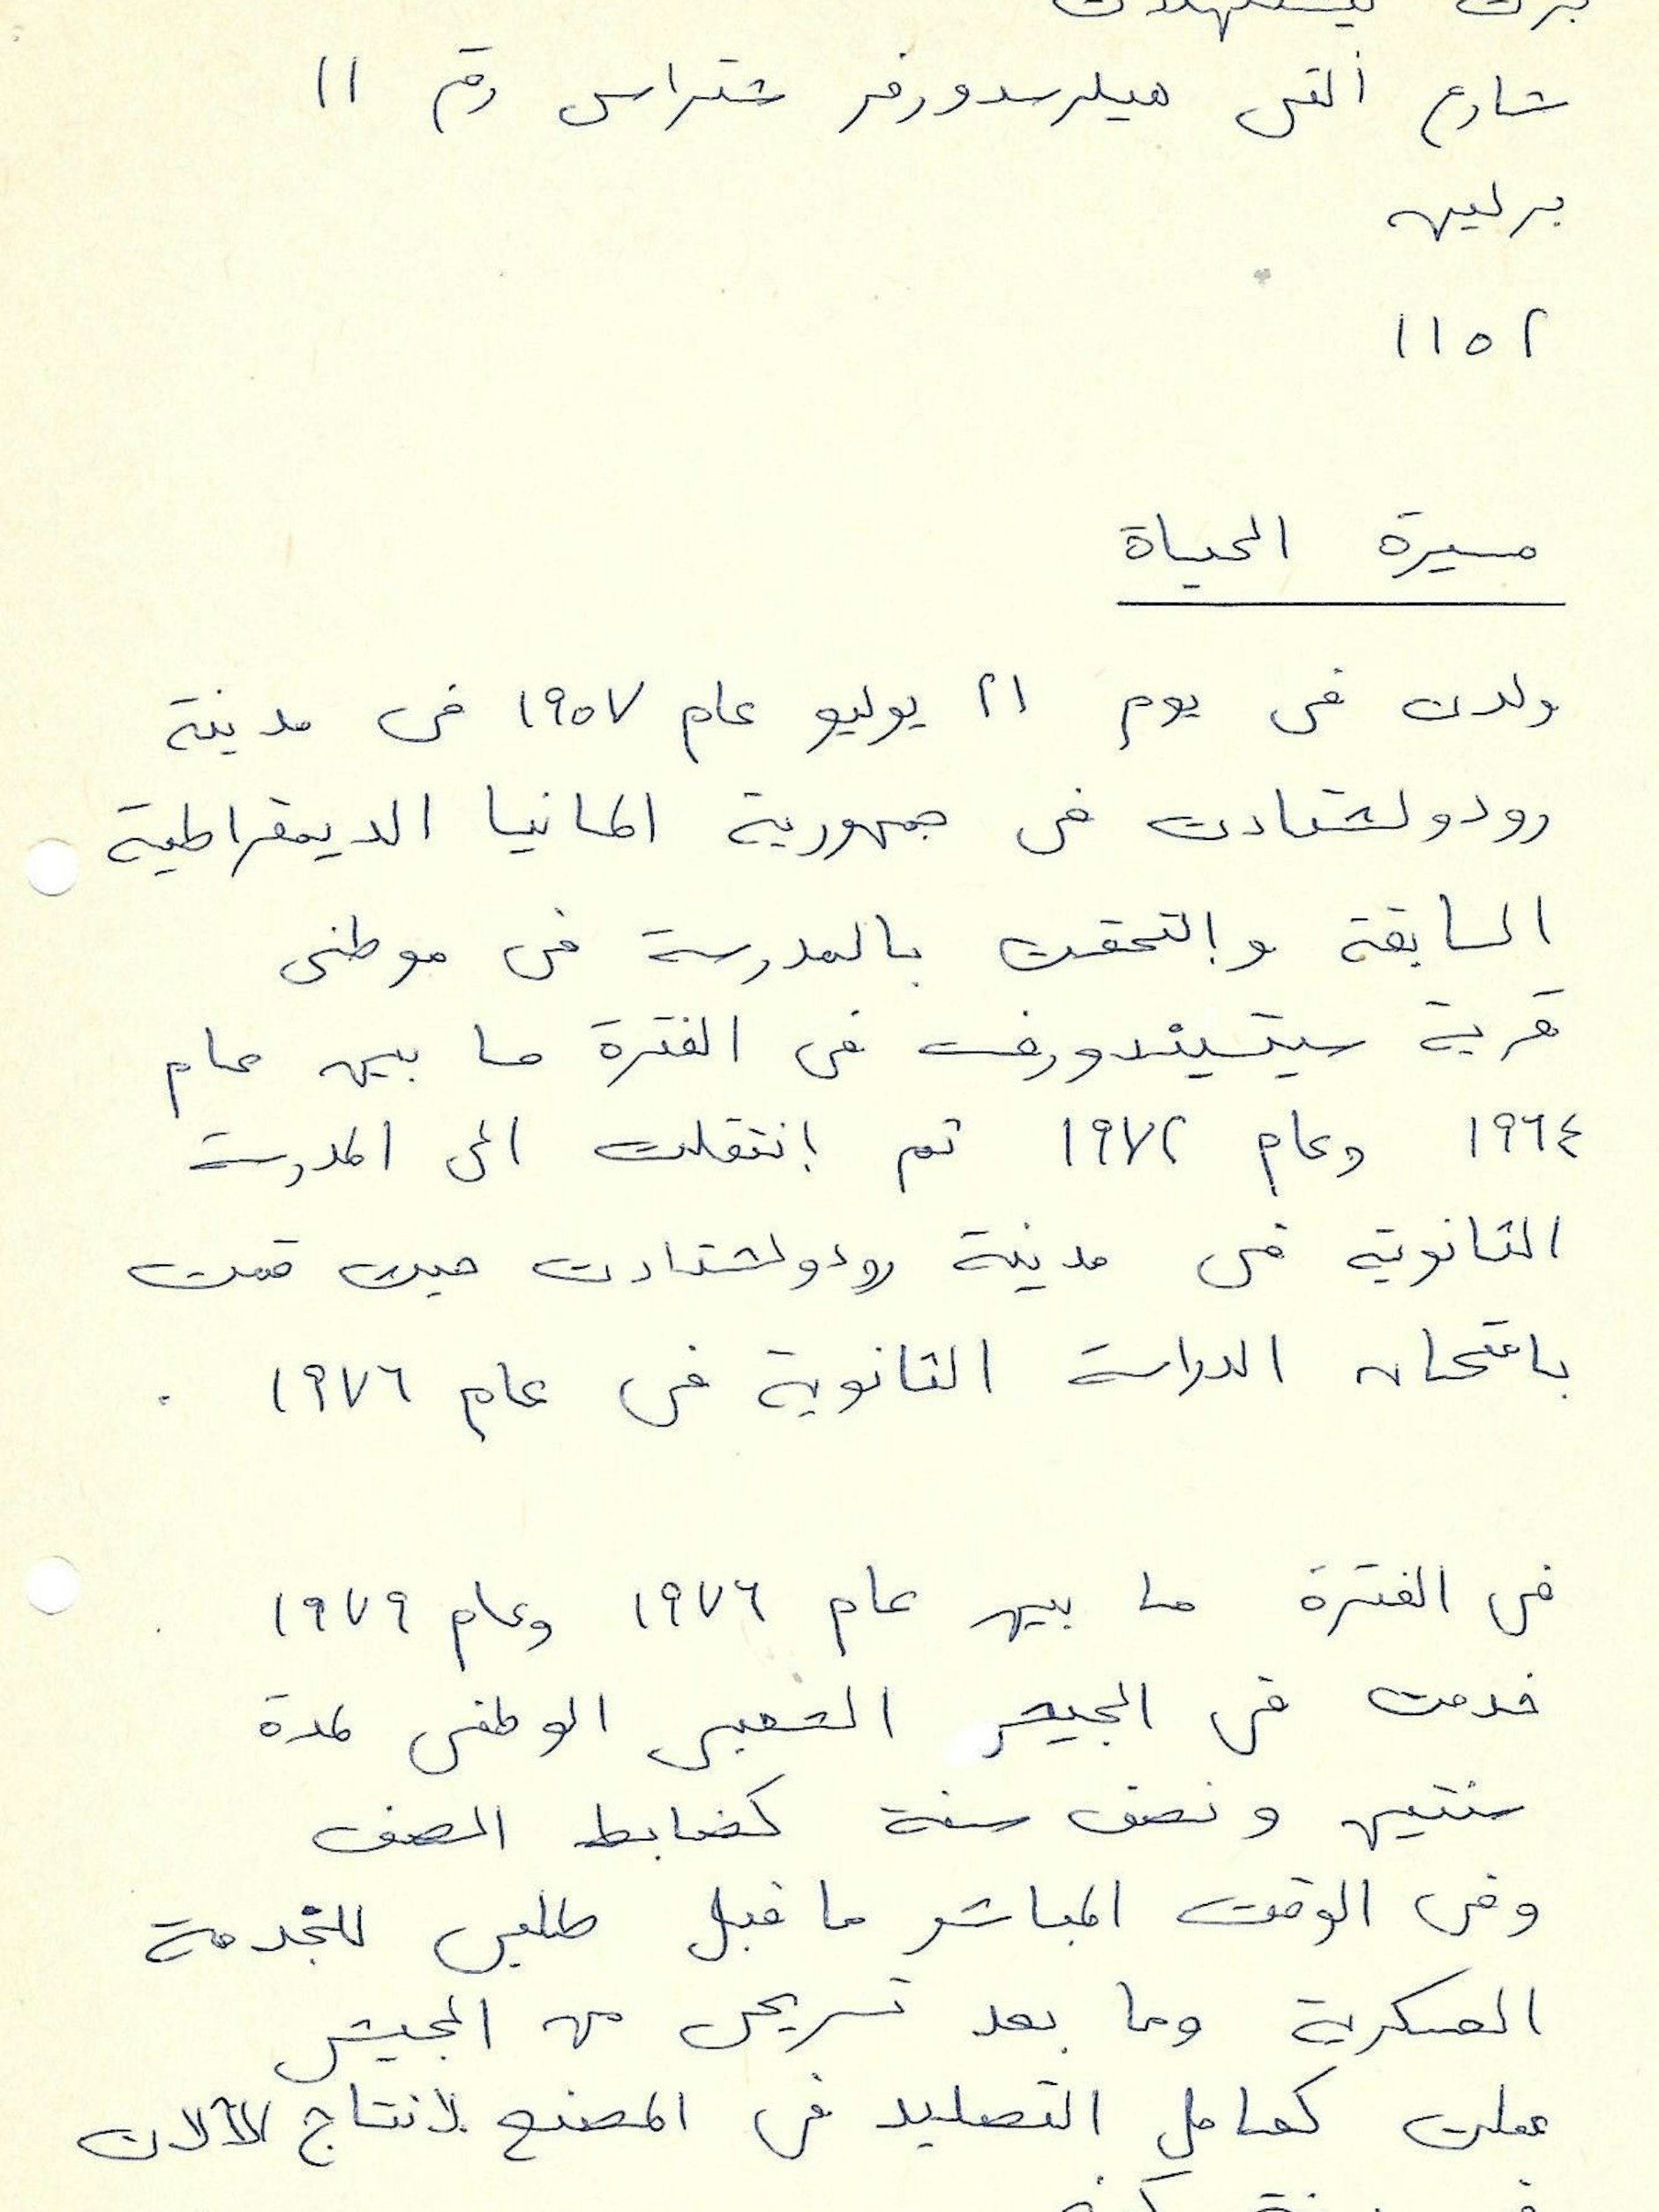 شارع ألتى هيلرسدورفر شتراس رقم ١١
برلين
١١٥٢
مسيرة الحياة
ولدت فى يوم ٢١ يوليو عام ١٩٥٧ فى مدينة
رودولشتادت فى جمهورية المانيا الديمقراطية
السابقة وإلتحقت بالمدرسة فى موطنى
قرية سيتسيندورف فى الفترة ما بين عام
١٩٦٤ وعام ١٩٧٢ ثم إنتقلت الى المدرسة
الثانوية فى مدينة رودولشتادت حيث قمت
بامتحان الدراسة الثانوية فى عام ١٩٧٦ .
فى الفترة ما بين عام ١٩٧٦ وعام ١٩٧٩
خدمت فى الجيش الشعبى الوطنى لمدة
سنتين ونصف سنة كضابط الصف
وفى الوقت المباشر ما قبل طلبى للخدمة
العسكرية وما بعد تسريحى من الجيش
عملت كعامل التصليد فى المصنع لانتاج الآلات